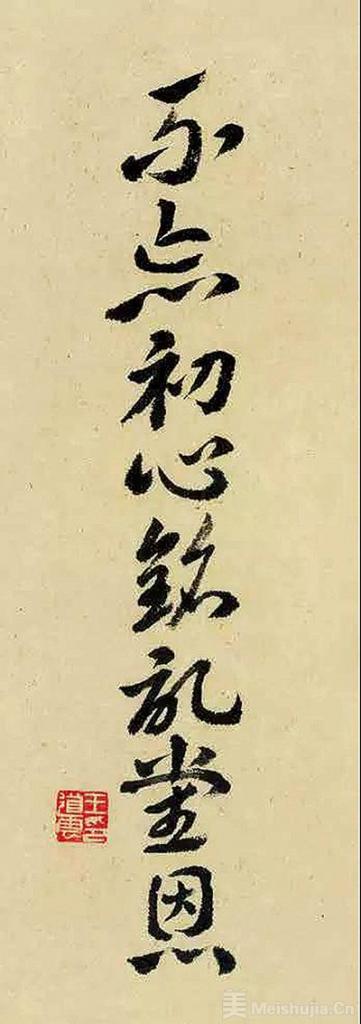 不忘初心铭记党恩
王道云印
美 Meishujia.Cn